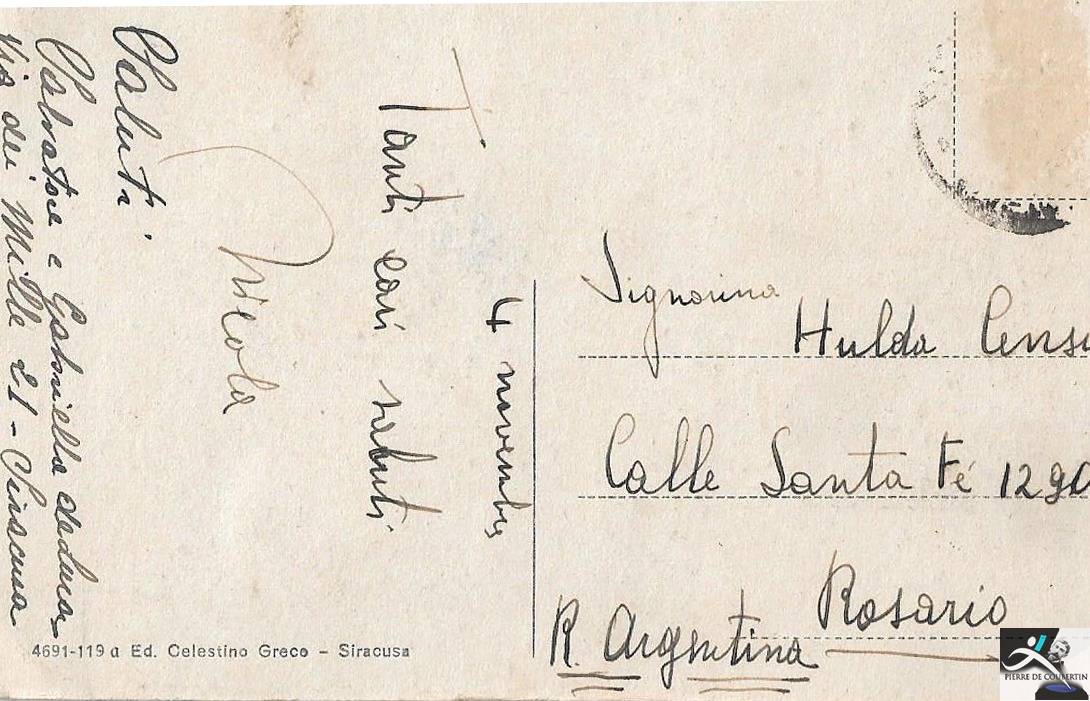 4 novembre
Tanti cari saluti
Nicola
Saluti
Salvatore e Gabriella
Via dei Mille 21 - Siracusa
Signorina
Hulda Censi
Calle Santa Fé 1290
Rosario
R. Argentina
4691-119 a Ed. Celestino Greco - Siracusa
PIERRE DE COUBERTIN